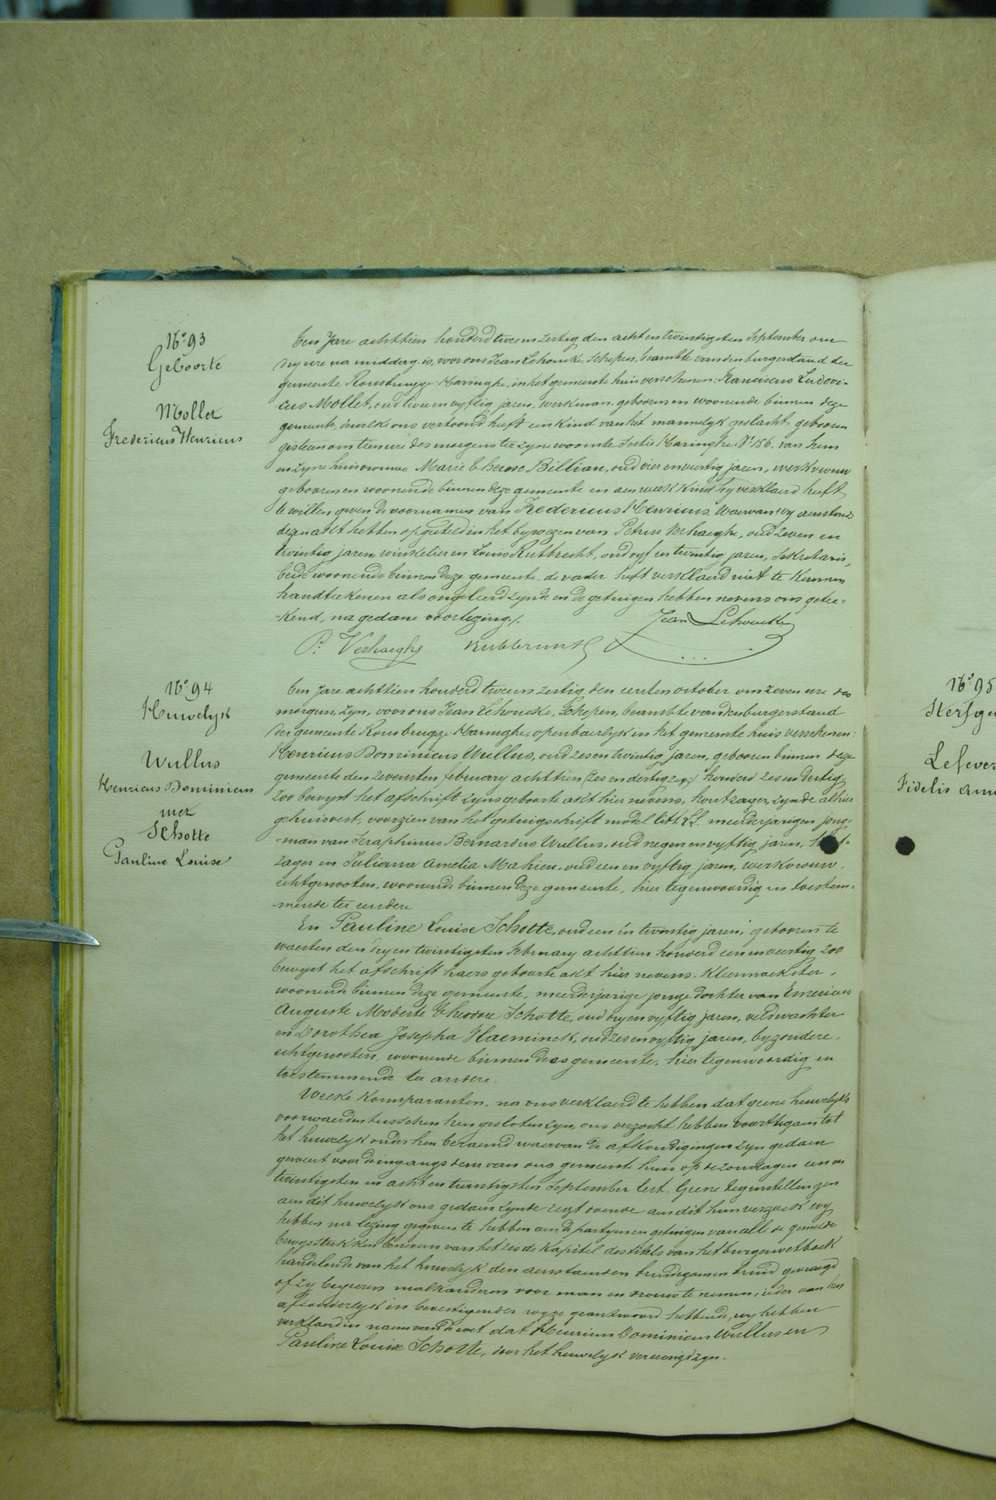 N° 93
Geboorte
Mollet
Fredericus Henricus
Een Jare achttien honderd twee en zestig, den acht en twintigsten September om
dry ure na middag is, voor ons Jean Lehoucke Schepen, beambte van den burgerstand der
gemeente Rousbrugge Haringhe, in het gemeente huis verschenen. Franciscus Ludovi-
cus Mollet, oud twee en vyftig jaren, werkman, geboren en woonende binnen deze
gemeente, welke ons vertoond heeft een kind van het mannelyk geslacht, geboren
gisteren om ten ure des morgens ter zyne woonste Sectie Haringhe N° 156. van hem
en zyne huisvrouw Marie Therese Billiau, oud vier en veertig jaren, werkvrouw
geboren en woonende binnen deze gemeente en aen welk kind hy verklaerd heeft
te willen geven de voornamen van Fredericus Henricus. Waervan wy aenstonds
deze akt hebben opgesteld in het bywezen van Petrus Verhaeghe, oud zeven en
twintig jaren, winkelier en Louis Rubbrecht, oud vyf en twintig jaren, Sekretaris,
beide woonende binnen deze gemeente. de vader heeft verklaerd niet te kunnen
handteekenen als ongeleerd zynde en de getuigen hebben nevens ons getee-
-kend, na gedane voorlezing.
Jean Lehoucke
P: Verhaeghe Rubbrecht
N° 94
Huwelyk
Wullus
Henricus Dominicus
met
Schotte
Pauline Louise
Een Jare achttien honderd twee en zestig, den eersten october om zeven ure des
morgens, zyn, voor ons Jean Lehoucke, Schepen, beambte van den burgerstand
der gemeente Rousbrugge Haringhe openbaerlyk in het gemeente huis verschenen.
Henricus Dominicus Wullus, oud zes en twintig jaren, geboren binnen deze
gemeente den zevensten february achttien honderd zes en dertig
zoo bewyst het afschrift zyns geboorte akt hier nevens, houtzager, zynde alhier
gehuisvest, voorzien van het getuigschrift model litt. meerderjarigen jong-
-man van Seraphinus Bernardus Wullus, oud negen en vyftig jaren, hout-
zager en Juliana Amelia Mahieu, oud een en vyftig jaren, werkvrouw,
echtgenooten, woonende binnen deze gemeente, hier tegenwoordig en toestem-
mende ter eendere
En Pauline Louise Schotte, oud een en twintig jaren, geboren te
Waesten den dry en twintigsten february achttien honderd een en veertig, zoo
bewyst het afschrift haers geboorte akt hier nevens. Kleermaekster,
woonende binnen deze gemeente, meerderjarige jonge dochter van Emericus
Auguste Theodore Schotte, oud dry en vyftig jaren, veldwachter
en Dorothea Josepha Haeminck, oud zes en vyftig jaren, byzondere,
echtgenooten, woonende binnen deze gemeente, hier tegenwoordig en
toestemmende ter andere.
Welke komparanten, na ons verklaerd te hebben dat geene huwelyks
voorwaerden tusschen hen gesloten zyn, ons verzocht hebben voort te gaen tot
het huwelyk onder hen beraemd waervan de afkondigingen zyn gedaen
geweest voor den ingang deur van ons gemeente huis op de zondagen een en
twintigsten en acht en twintigsten September lest. Geene tegenstellingen
aen dit huwelyk ons gedaen zynde recht doende aen dit hun verzoek wy
hebben na lezing gegeven te hebben aen de partyen en getuigen van alle de gemelde
bewysstukken benevens van het zesde kapitel des titels van het burgerwetboek
handelende van het huwelyk den aenstaenden bruidegom en bruid gevraegd
of zy begeeren malkanderen voor man en vrouw te nemen, ieder van hen
afzonderlyk en bevestigender wyze geantwoord hebbende, wy hebben
verklaerd in naem van de wet dat Henricus Dominicus Wullus en
Pauline Louise Schotte, door het huwelyk vereenigd zyn.
N° 95
Sterfge
Lefever
Fidelis Ama